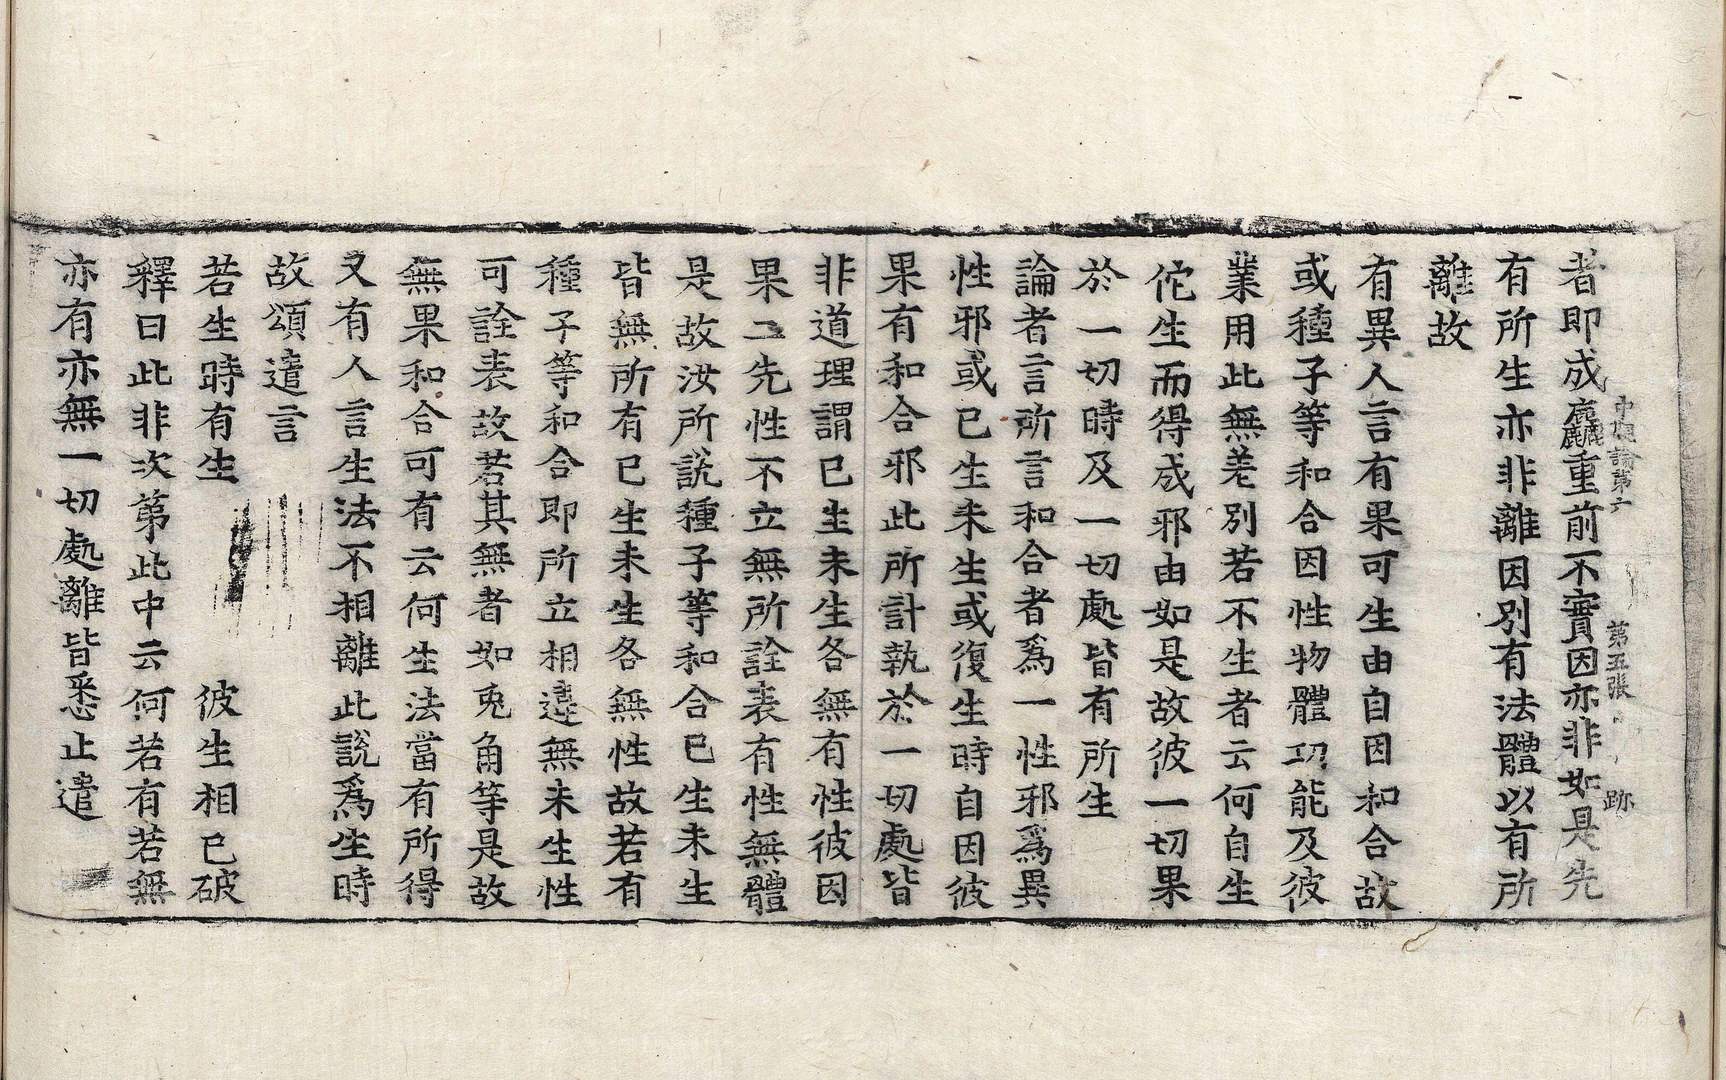 者即成麤重前不實因亦非如是先
中觀論第六 第五張 跡
有所生亦非離因別有法體以有所
離故
有異人言有果可生由自因和合故
或種子等和合因性物體功能及彼
業用此無差別若不生者云何自生
佗生而得成邪由如是故彼一切果
於一切時及一切處皆有所生
論者言所言和合者爲一性邪爲異
性邪或已生未生或復生時自因彼
果有和合邪此所計執於一切處皆
非道理謂已生未生各無有性彼因
果二先性不立無所詮表有性無體
是故汝所說種子等和合已生未生
皆無所有已生未生各無性故若有
種子等和合即所立相違無未生性
可詮表故若其無者如兎角等是故
無果和合可有云何生法當有所得
又有人言生法不相離此說爲生時
故頌遣言
若生時有生 彼生相已破
釋曰此非次第此中云何若有若無
亦有亦無一切處離皆悉止遣